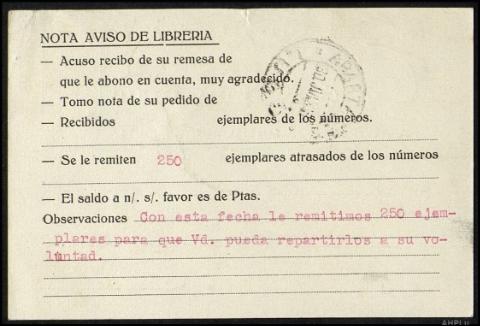 NOTA AVISO DE LIBRERIA
— Acuso recibo de su remesa de
que le abono en cuenta, muy agradecido.
— Tomo nota de su pedido de
— Recibidos ejemplares de los números.
— Se le remiten 250 ejemplares atrasados de los números
— El saldo a n/. s/. favor es de Ptas.
Observaciones Con esta fecha le remitimos 250 ejem-
plares para que Vd. pueda repartirlos a su vo-
luntad.